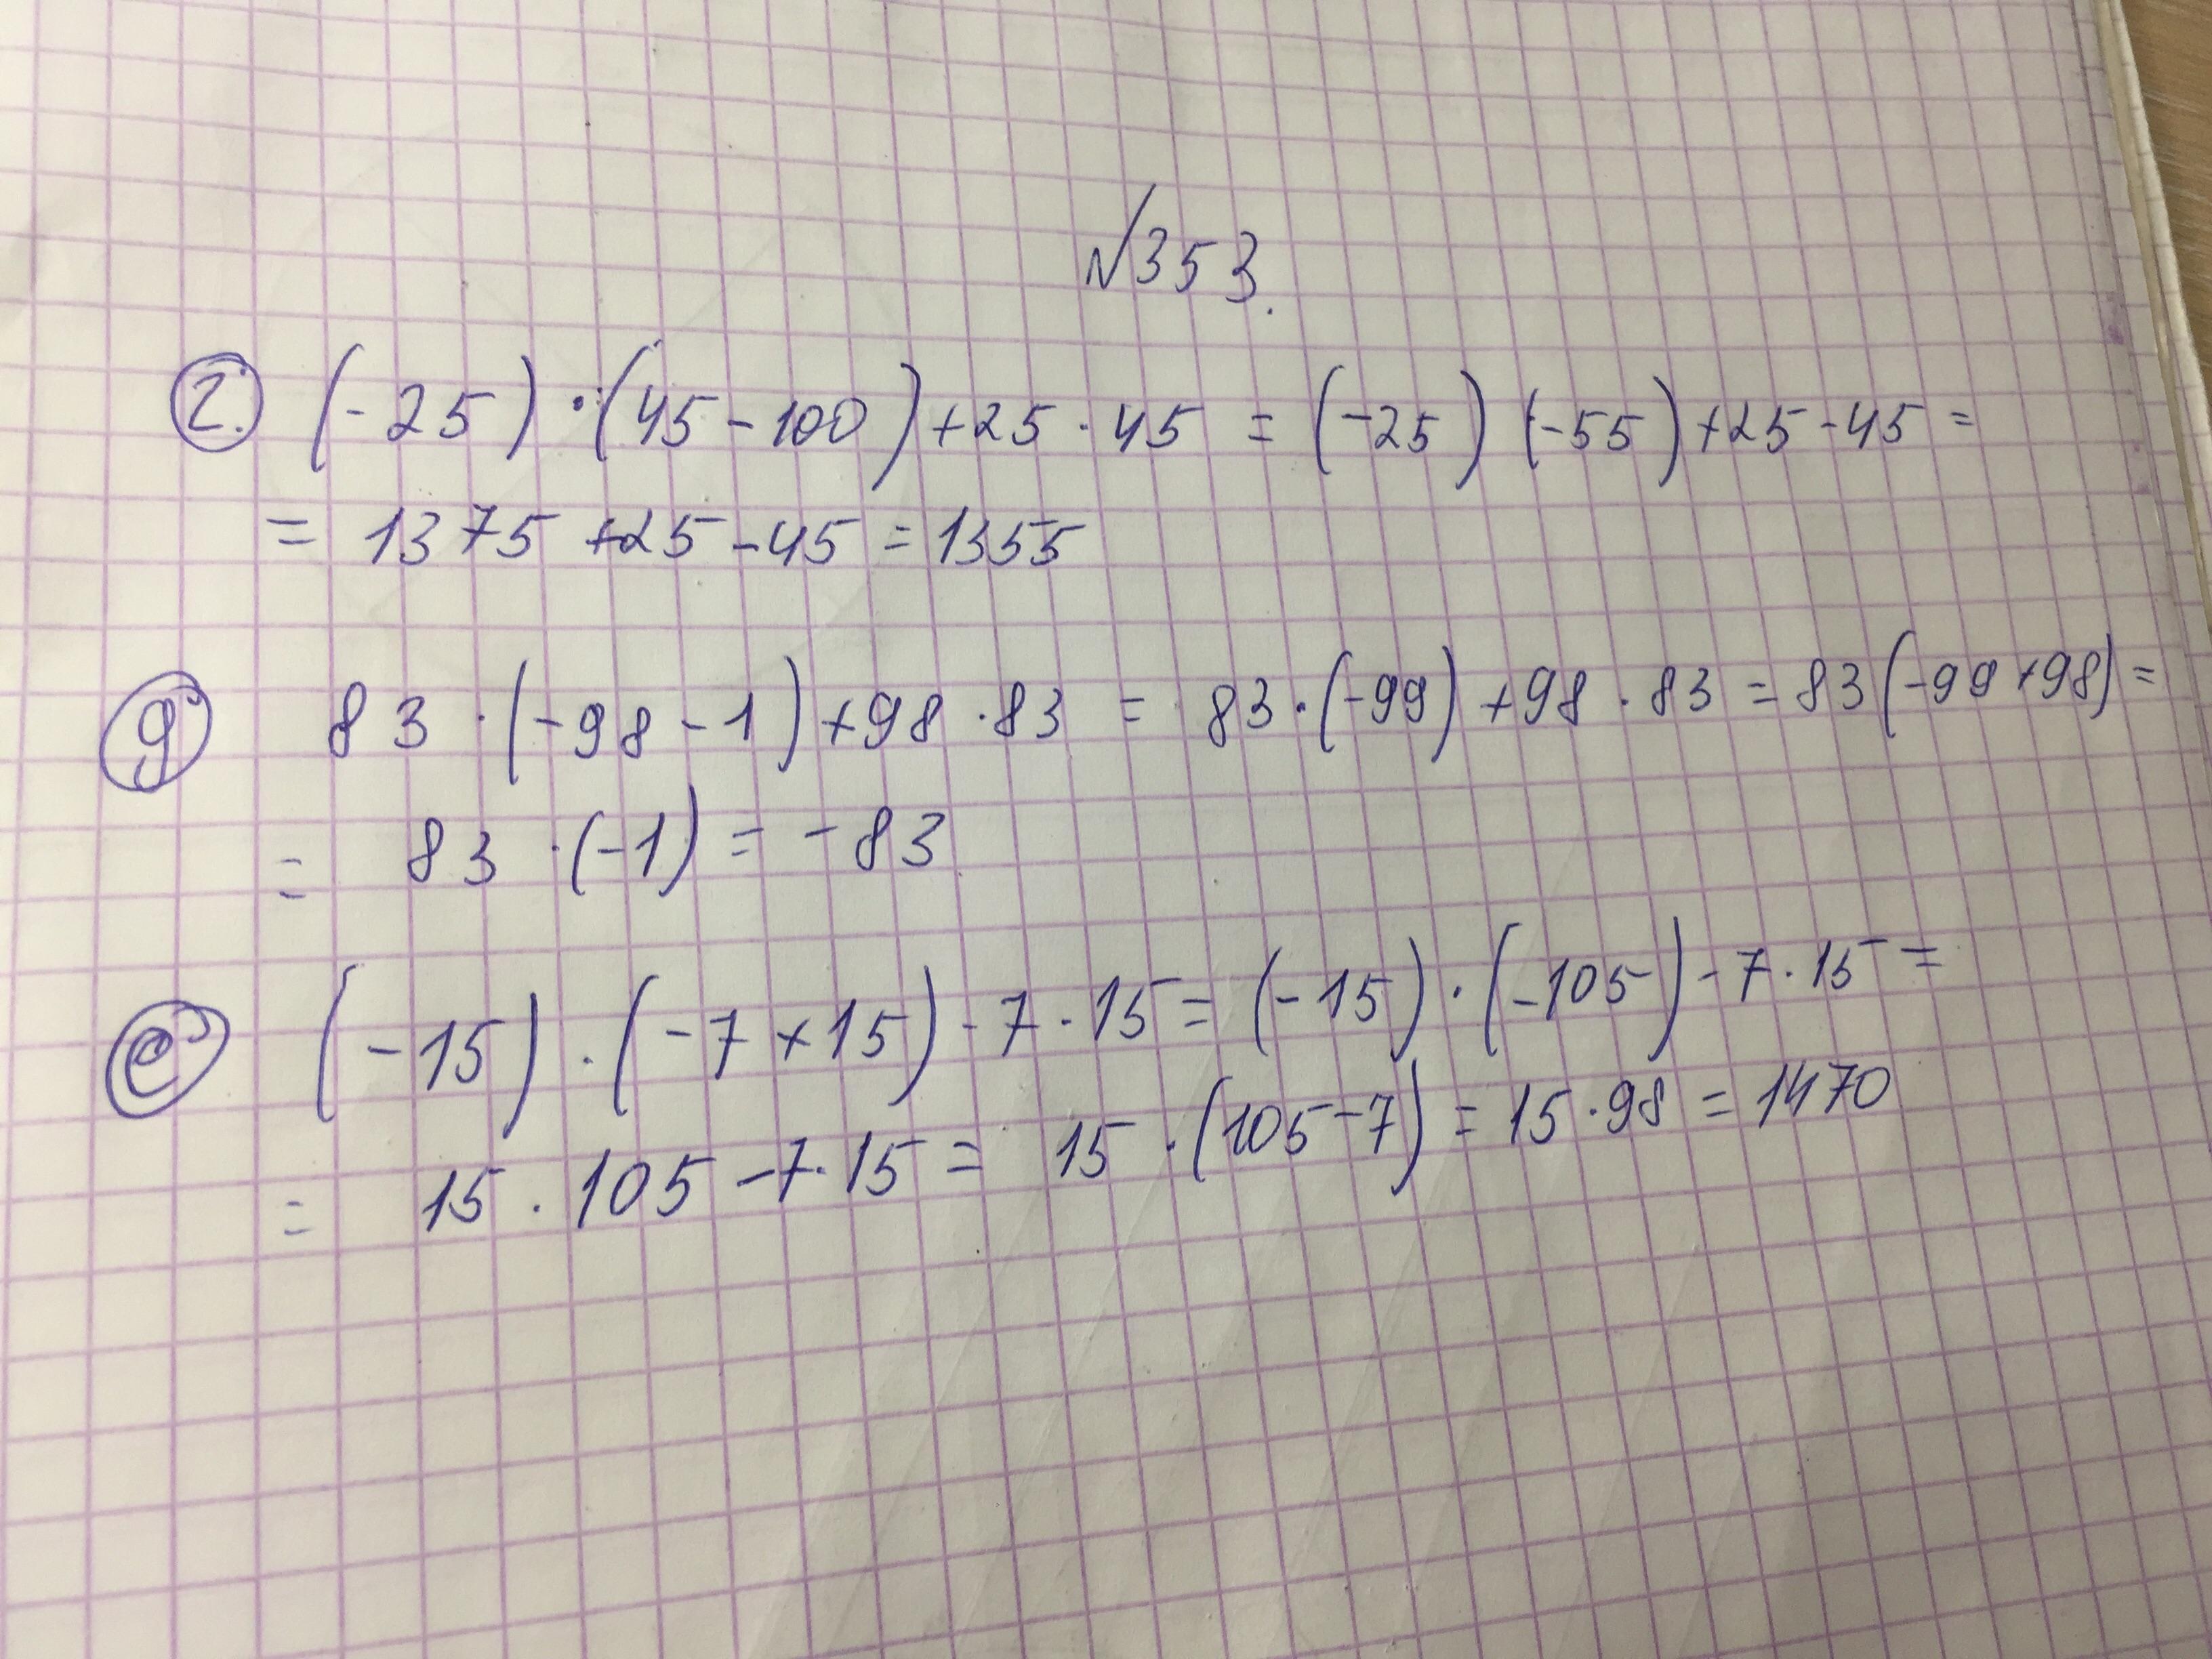 №353.
г. (-25)·(45-100)+25·45 = (-25)(-55)+25-45 =
= 1375+25-45 = 1355
д 83·(-98-1)+98·83 = 83·(-99)+98·83 = 83(-99+98) =
= 83·(-1) = -83
е (-15)·(-7×15)-7·15 = (-15)·(-105)-7·15 =
= 15·105-7·15 = 15·(105-7) = 15·98 = 1470